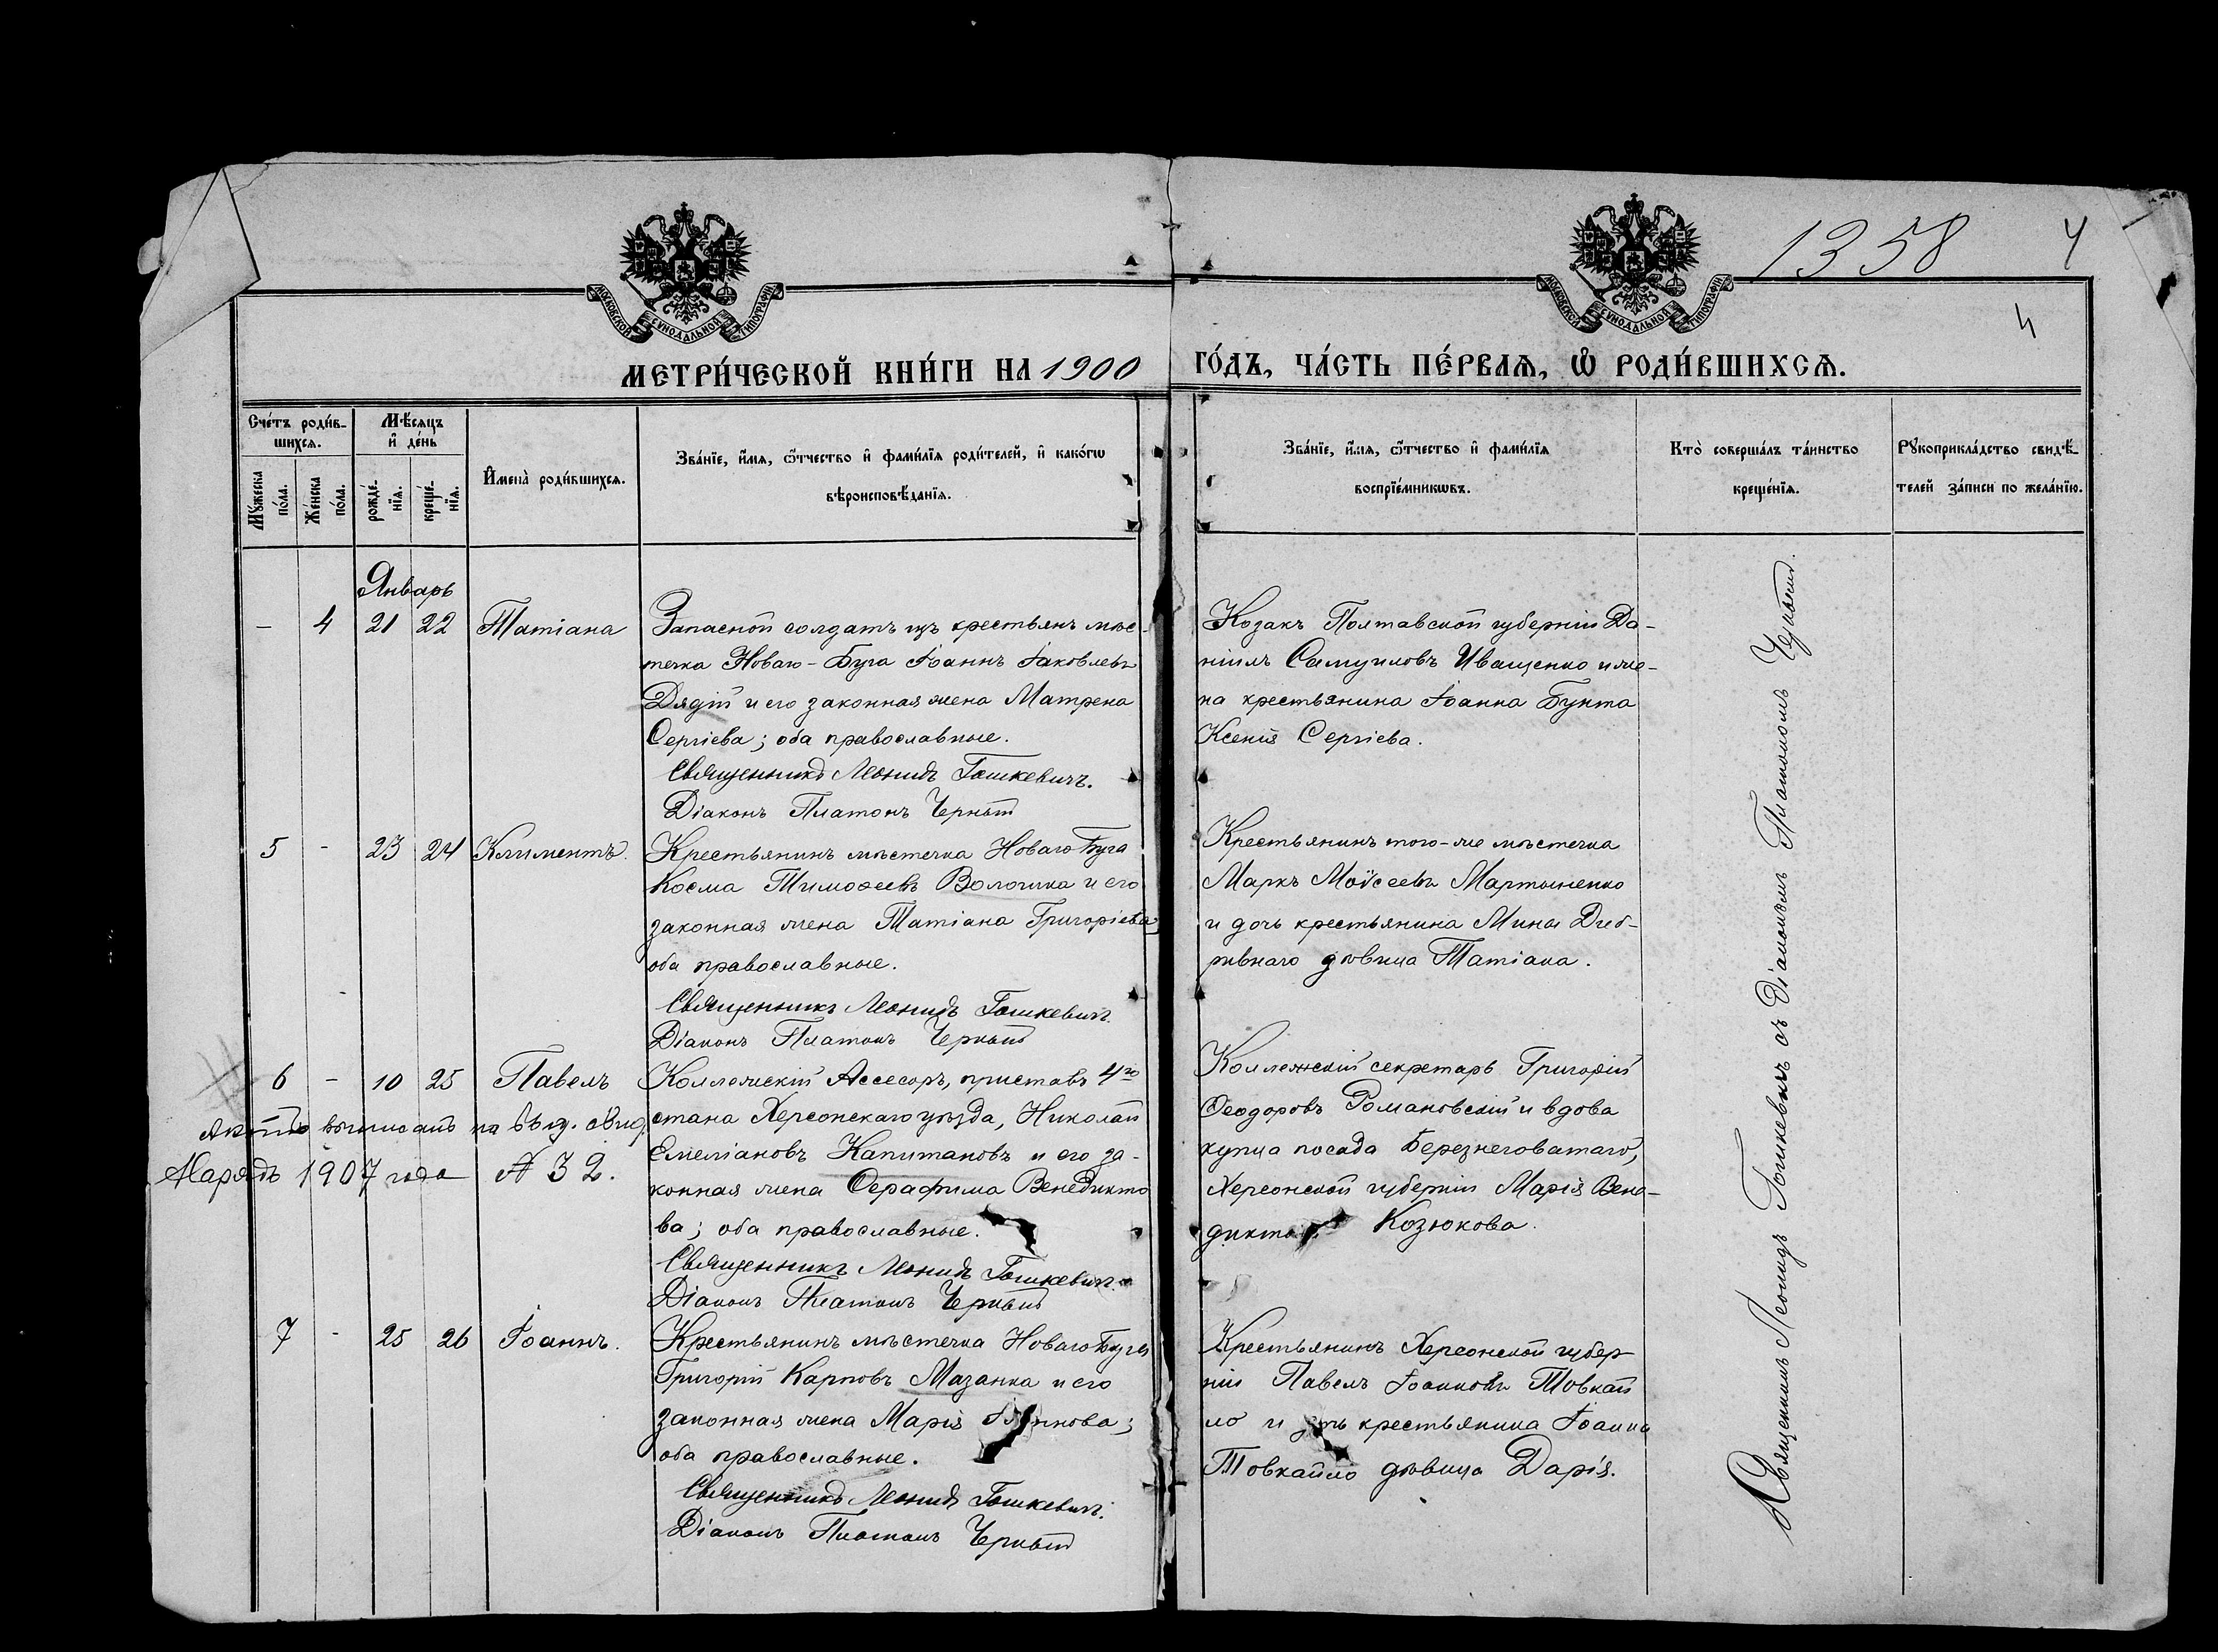 1358
4
4
МОСКОВСКОЙ СѴНОДАЛЬНОЙ ТИПОГРАФІИ
МОСКОВСКОЙ СѴНОДАЛЬНОЙ ТИПОГРАФІИ
МЕТРИ́ЧЕСКОЙ КНИ́ГИ НА 1900 ГО́ДЪ, ЧА́СТЬ ПЕ́РВАѦ, Ѡ҆ РОДИ́ВШИХСѦ.
Сче́тъ роди́в-
шихсѧ.
Мꙋ́жеска
по́ла.
Же́нска
по́ла.
Мѣ́сѧцъ
и҆ де́нь
рожде́-
нїѧ.
креще́-
нїѧ.
И҆мена̀ роди́вшихсѧ.
Зва́нїе, и҆́мѧ, ѻ҆́тчество и҆ фами́лїѧ роди́телей, и҆ како́гѡ
вѣроисповѣ́данїѧ.
Зва́нїе, и҆́мѧ, ѻ҆́тчество и҆ фами́лїѧ
воспрїе́мникѡвъ.
Кто̀ соверша́лъ та́инство
креще́нїѧ.
Рꙋкоприкла́дство свидѣ́-
телей за́писи по жела́нїю.
Январь
— 4 21 22 Татіана
Запасной солдатъ изъ крестьянъ мѣс-
течка Новаго-Буга Іоаннъ Іаковлевъ
Дядій и его законная жена Матрена
Сергіева; оба православные.
Священникъ Леонидъ Гошкевичъ.
Діаконъ Платонъ Черный
Козакъ Полтавской губерніи Да-
ніилъ Самуиловъ Иващенко и же-
на крестьянина Іоанна Бунта
Ксенія Сергіева.
5 - 23 24 Климентъ.
Крестьянинъ мѣстечка Новаго Буга
Косма Тимоѳеевъ Волошка и его
законная жена Татіана Григоріева
оба православные.
Священникъ Леонидъ Гошкевичъ.
Діаконъ Платонъ Черный
Крестьянинъ того-же мѣстечка
Маркъ Моѵсеевъ Мартыненко
и дочь крестьянина Мины
дѣвица Татіана.
6 - 10 25 Павелъ
Коллежскій Ассесоръ, приставъ 4го
стана Херсонскаго уѣзда, Николай
Емеліановъ Капитановъ и его за-
конная жена Серафима Венедикто
ва; оба православные.
Священникъ Леонидъ Гошкевичъ.
Діаконъ Платонъ Черный
Нарядъ 1907 года № 32.
Коллежскій секретарь Григорій
Ѳеодоровъ Романовскій и вдова
купца посада Березнеговатаго,
Херсонской губерніи Марія Вене-
дикто Козюкова.
7 - 25 26 Іоаннъ.
Крестьянинъ мѣстечка Новаго Буга
Григорій Карповъ Мазанка и его
законная жена Марія Іоаннова;
оба православные.
Священникъ Леонидъ Гошкевичъ.
Діаконъ Платонъ Черный
Крестьянинъ Херсонской губер
ніи Павелъ Іоанновъ Товкай
ло и дочь крестьянина Іоанна
Товкайло дѣвица Дарія.
Священникъ Леонидъ Гошкевичъ съ Діакономъ Платономъ Чернымъ.